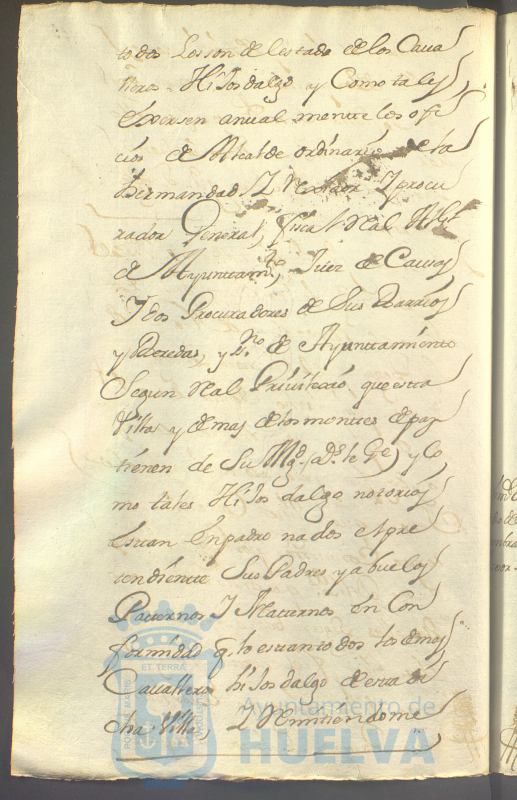 todos Losson de lestado de los Cava
lleros Hijosdalgo y Como tales
Exersen anual mente los ofi
cios de Alcalde ordinario de la
hermandad, I Rexidor I procu
rador General, fiscal Real
de Ayuntamto, Juez de Causas
I dos Procuradores de Sus Barrios
y Veredas, y sno de Ayuntamiento
Segun Real Privilexio, que esta
Villa y demas de los montes de paz
tienen de Su Mgd (Ds le Ge) y Co
mo tales Hijos dalgo notorios
Estan Enpadronados el pre
tendiente Sus Padres y abuelos
Paternos I Maternos en Con
formidad q. lo estan todos los demas
Cavalleros hijosdalgo de esta di
cha Villa I Remitiendome
Ayuntamiento de
HUELVA
ET TERRÆ